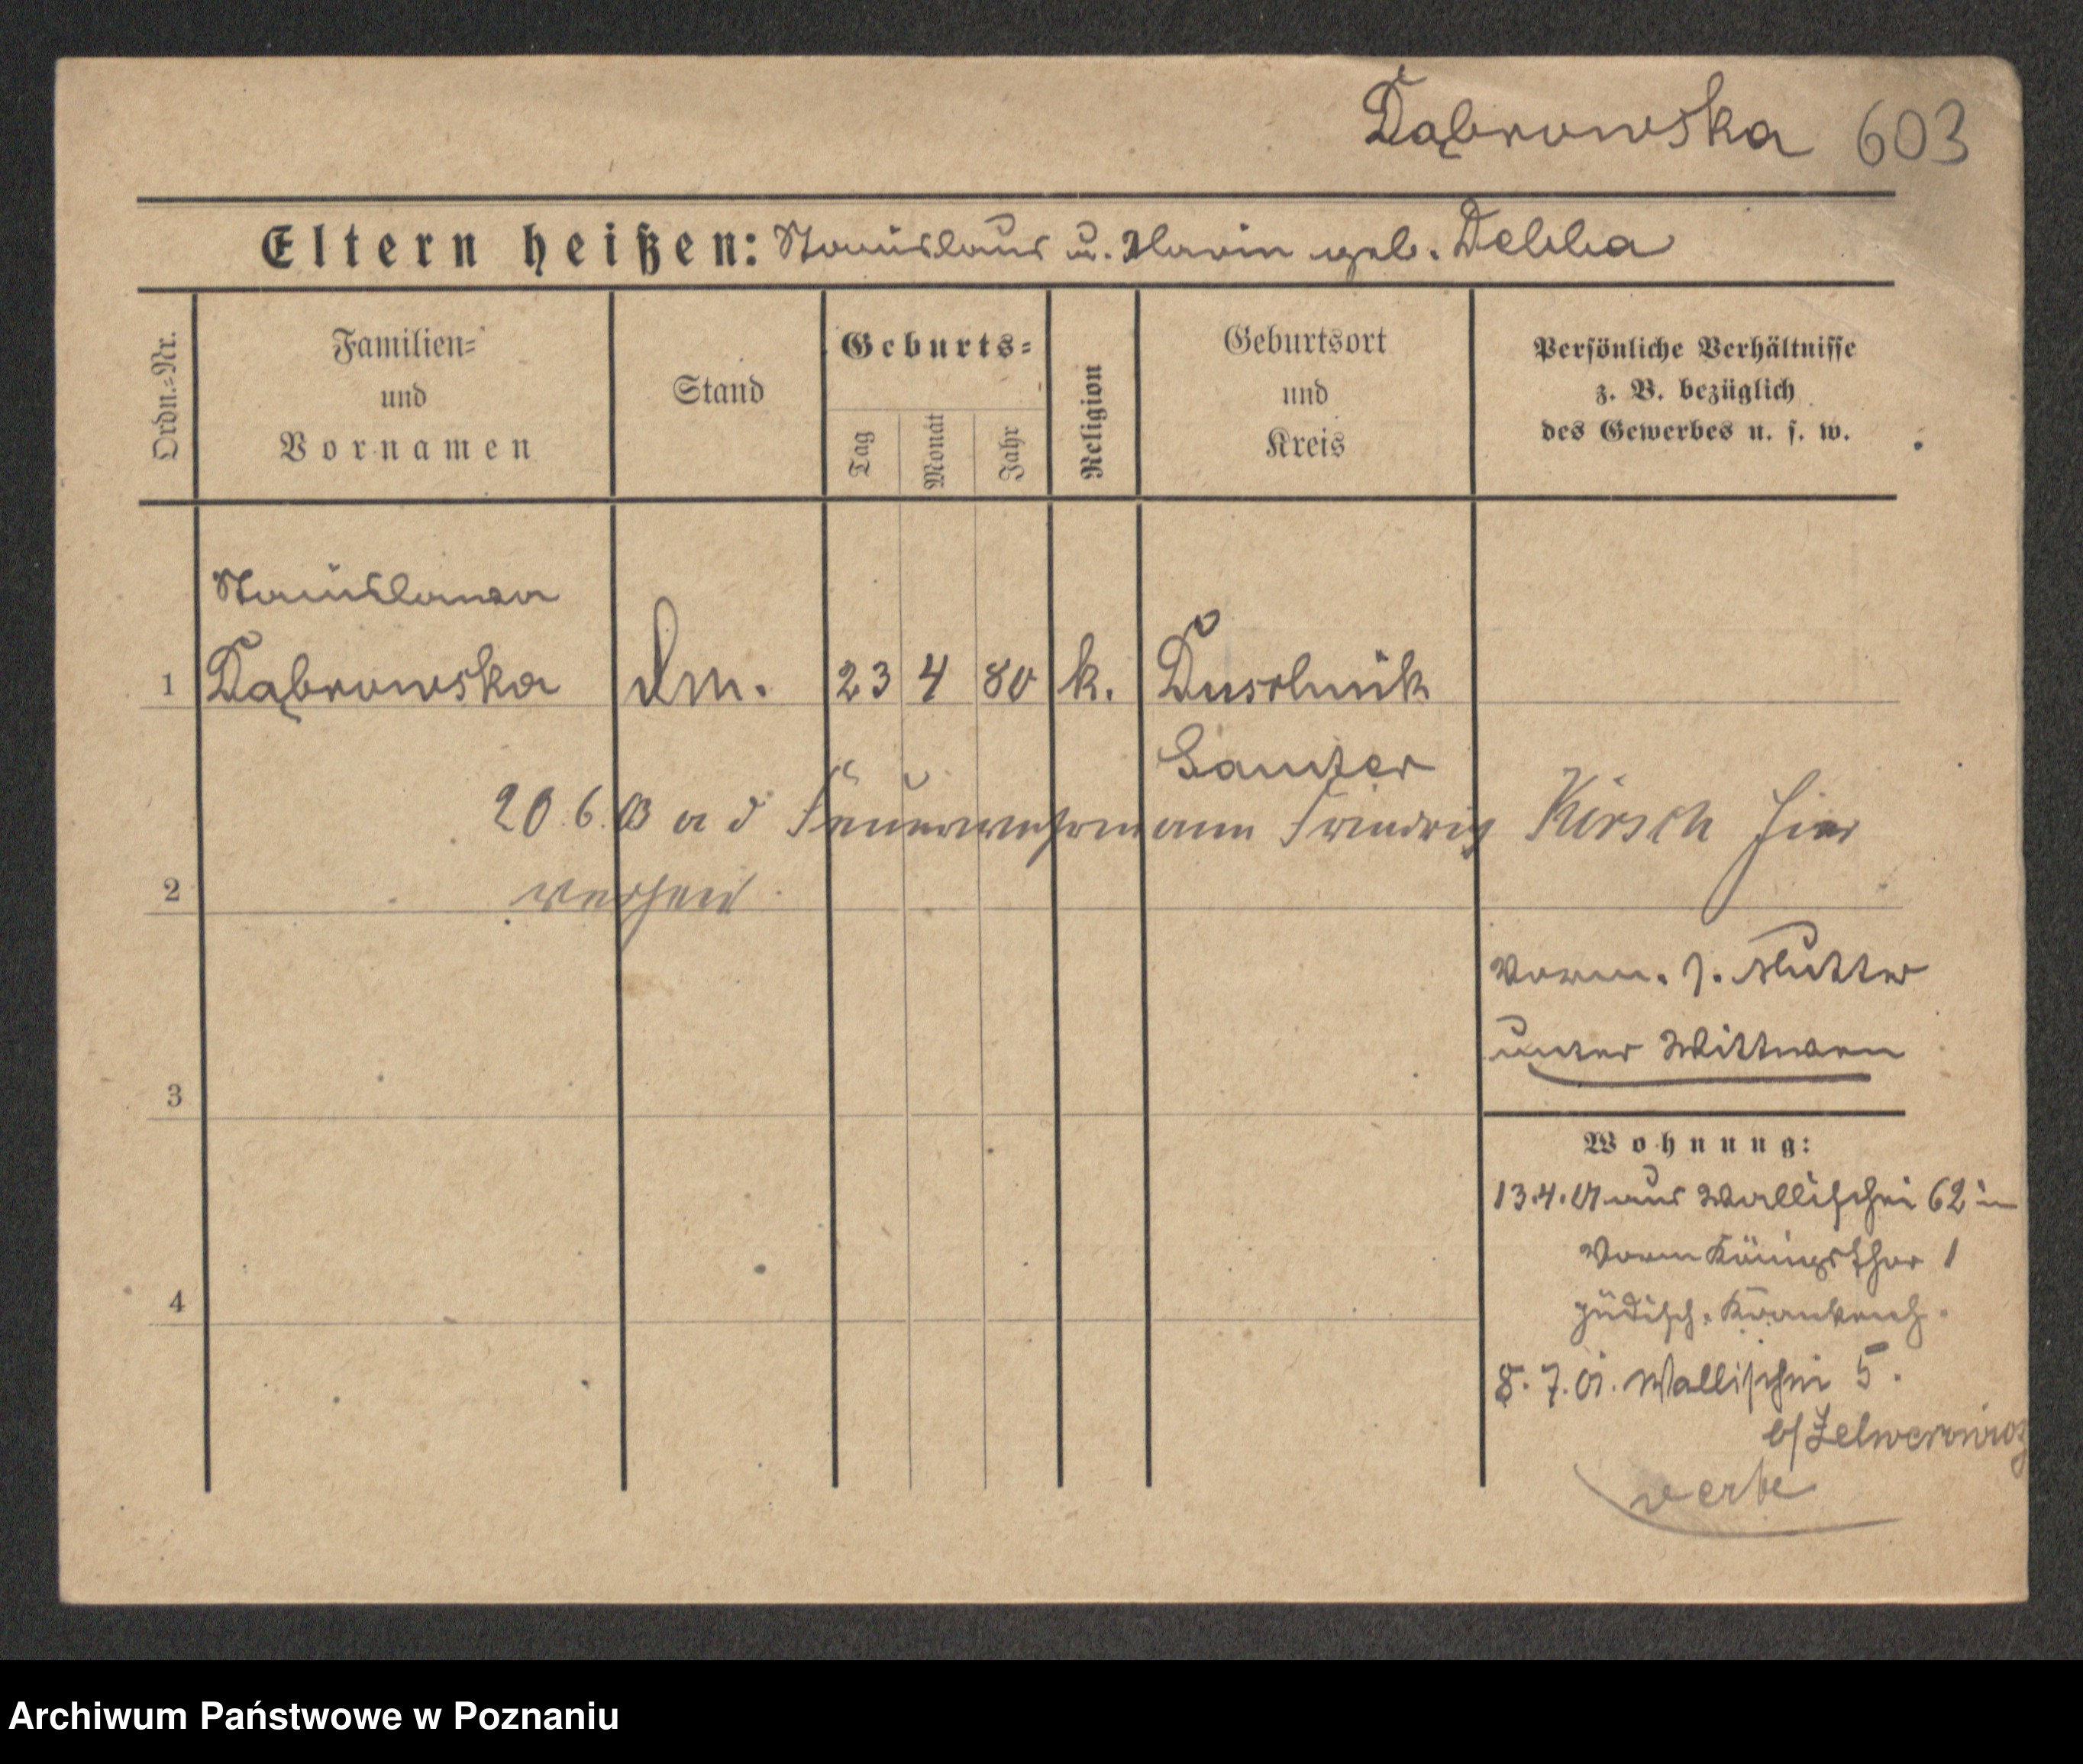 Dąbrowska 603
Eltern heißen: Stanislaus u. Marie geb. Debba
Ordn.=Nr.
Familien=
und
Vornamen
Stand
Geburts=
Tag
Monat
Jahr
Religion
Geburtsort
und
Kreis
Persönliche Verhältnisse
z. B. bezüglich
des Gewerbes u. s. w.
Stanislawa
1 Dąbrowska Dm. 23 4 80 k. Duschnik
Samter
20. 6. 03 a d Feuerwehrmann Friedrich Kirsch hier
2 verheir
Vorm. s. Mutter
unter Wittwen
3
Wohnung:
13.4.01 aus Wallischei 62 in
Vorm Königsthor 1
jüdisch. Krankenh.
4
8. 7. 01. Wallischei 5.
b/
Archiwum Państwowe w Poznaniu